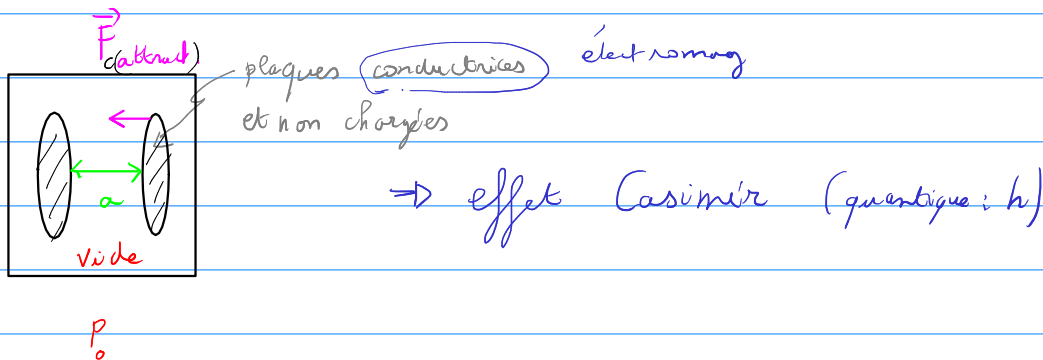 F⃗
C(attract)
plaques conductrices
et non chargées
électromag
a
vide
⇒ effet Casimir (quantique : h)
P₀